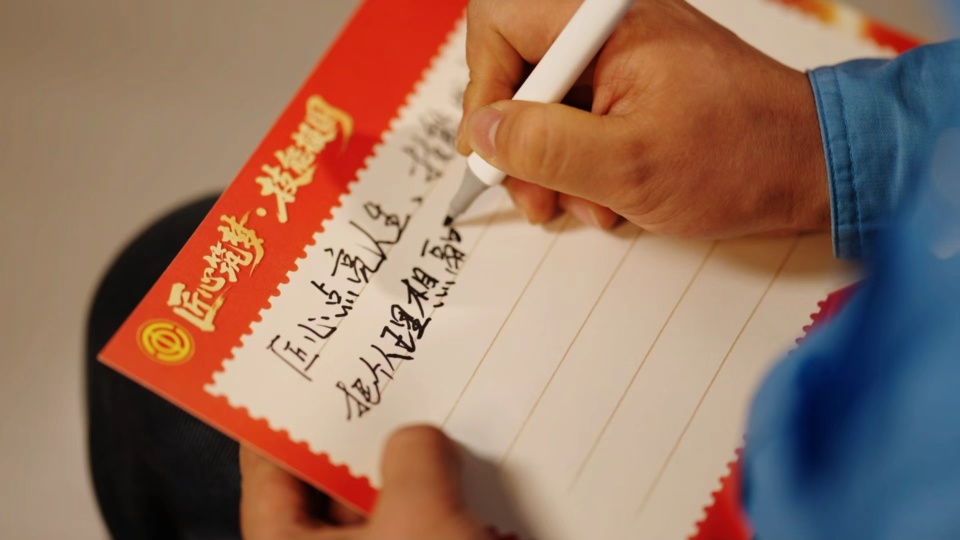 匠心筑梦·技能报国
匠心点亮人生、技能
把个人理想融